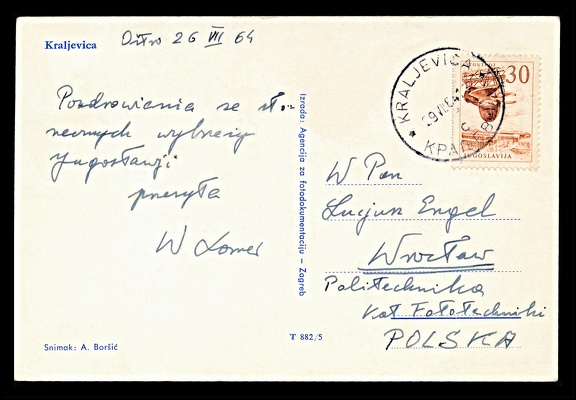 Kraljevica
Ostro 26 VII 64
Pozdrowienia ze sł.
necznych wybrzeży
Jugosławji
przesyła
W Łomer
Snimak: A. Boršić
Izrada: Agencija za fotodokumentaciju – Zagreb
T 882/5
KRALJEVICA
JUGOSLAVIJA
30
W Pan
Lucjan Engel
Wrocław
Politechnika
Kat Fototechniki
POLSKA